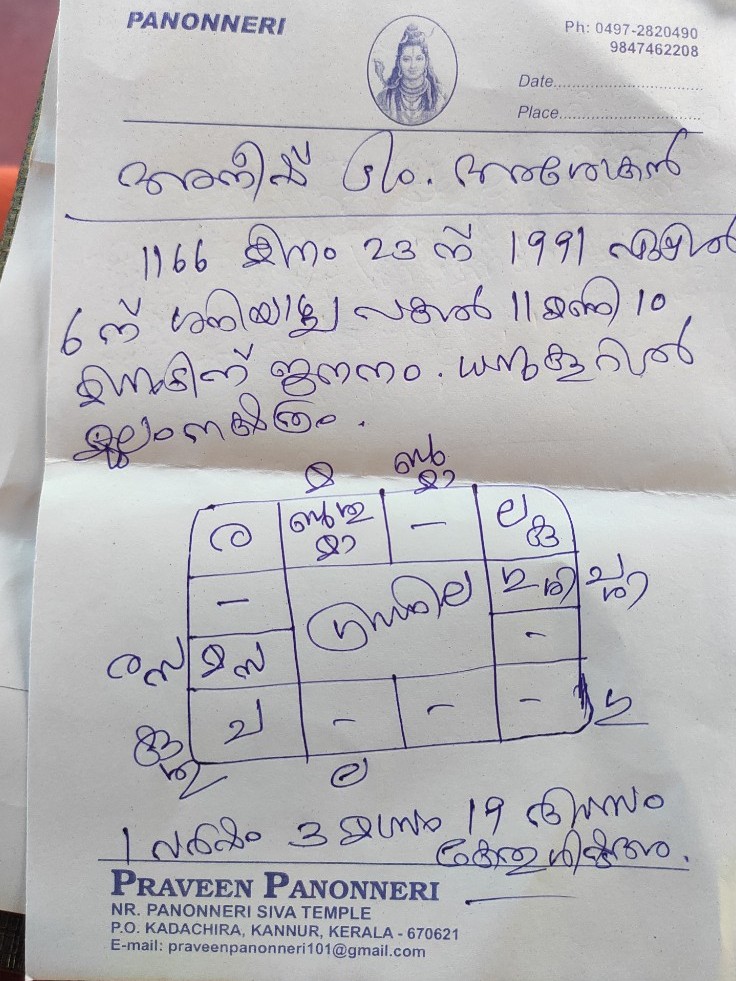 PANONNERI
Ph: 0497-2820490
9847462208
Date
Place
അനീഷ് S/o. അശോകൻ
1166 മീനം 23 ന് 1991 ഏപ്രിൽ
6 ന് ശനിയാഴ്ച പകൽ 11 മണി 10
മിനുട്ടിന് ജനനം. ധനുക്കൂറിൽ
മൂലം നക്ഷത്രം.
മ
ര
ബുശു
മാ
—
ല
കു
—
ഗ്രഹനില
—
ര സ
മ സ
ച
—
—
—
ല
1 വർഷം 3 മാസം 19 ദിവസം
കേതു ശിഷ്ടദശ.
PRAVEEN PANONNERI
NR. PANONNERI SIVA TEMPLE
P.O. KADACHIRA, KANNUR, KERALA - 670621
E-mail: praveenpanonneri101@gmail.com